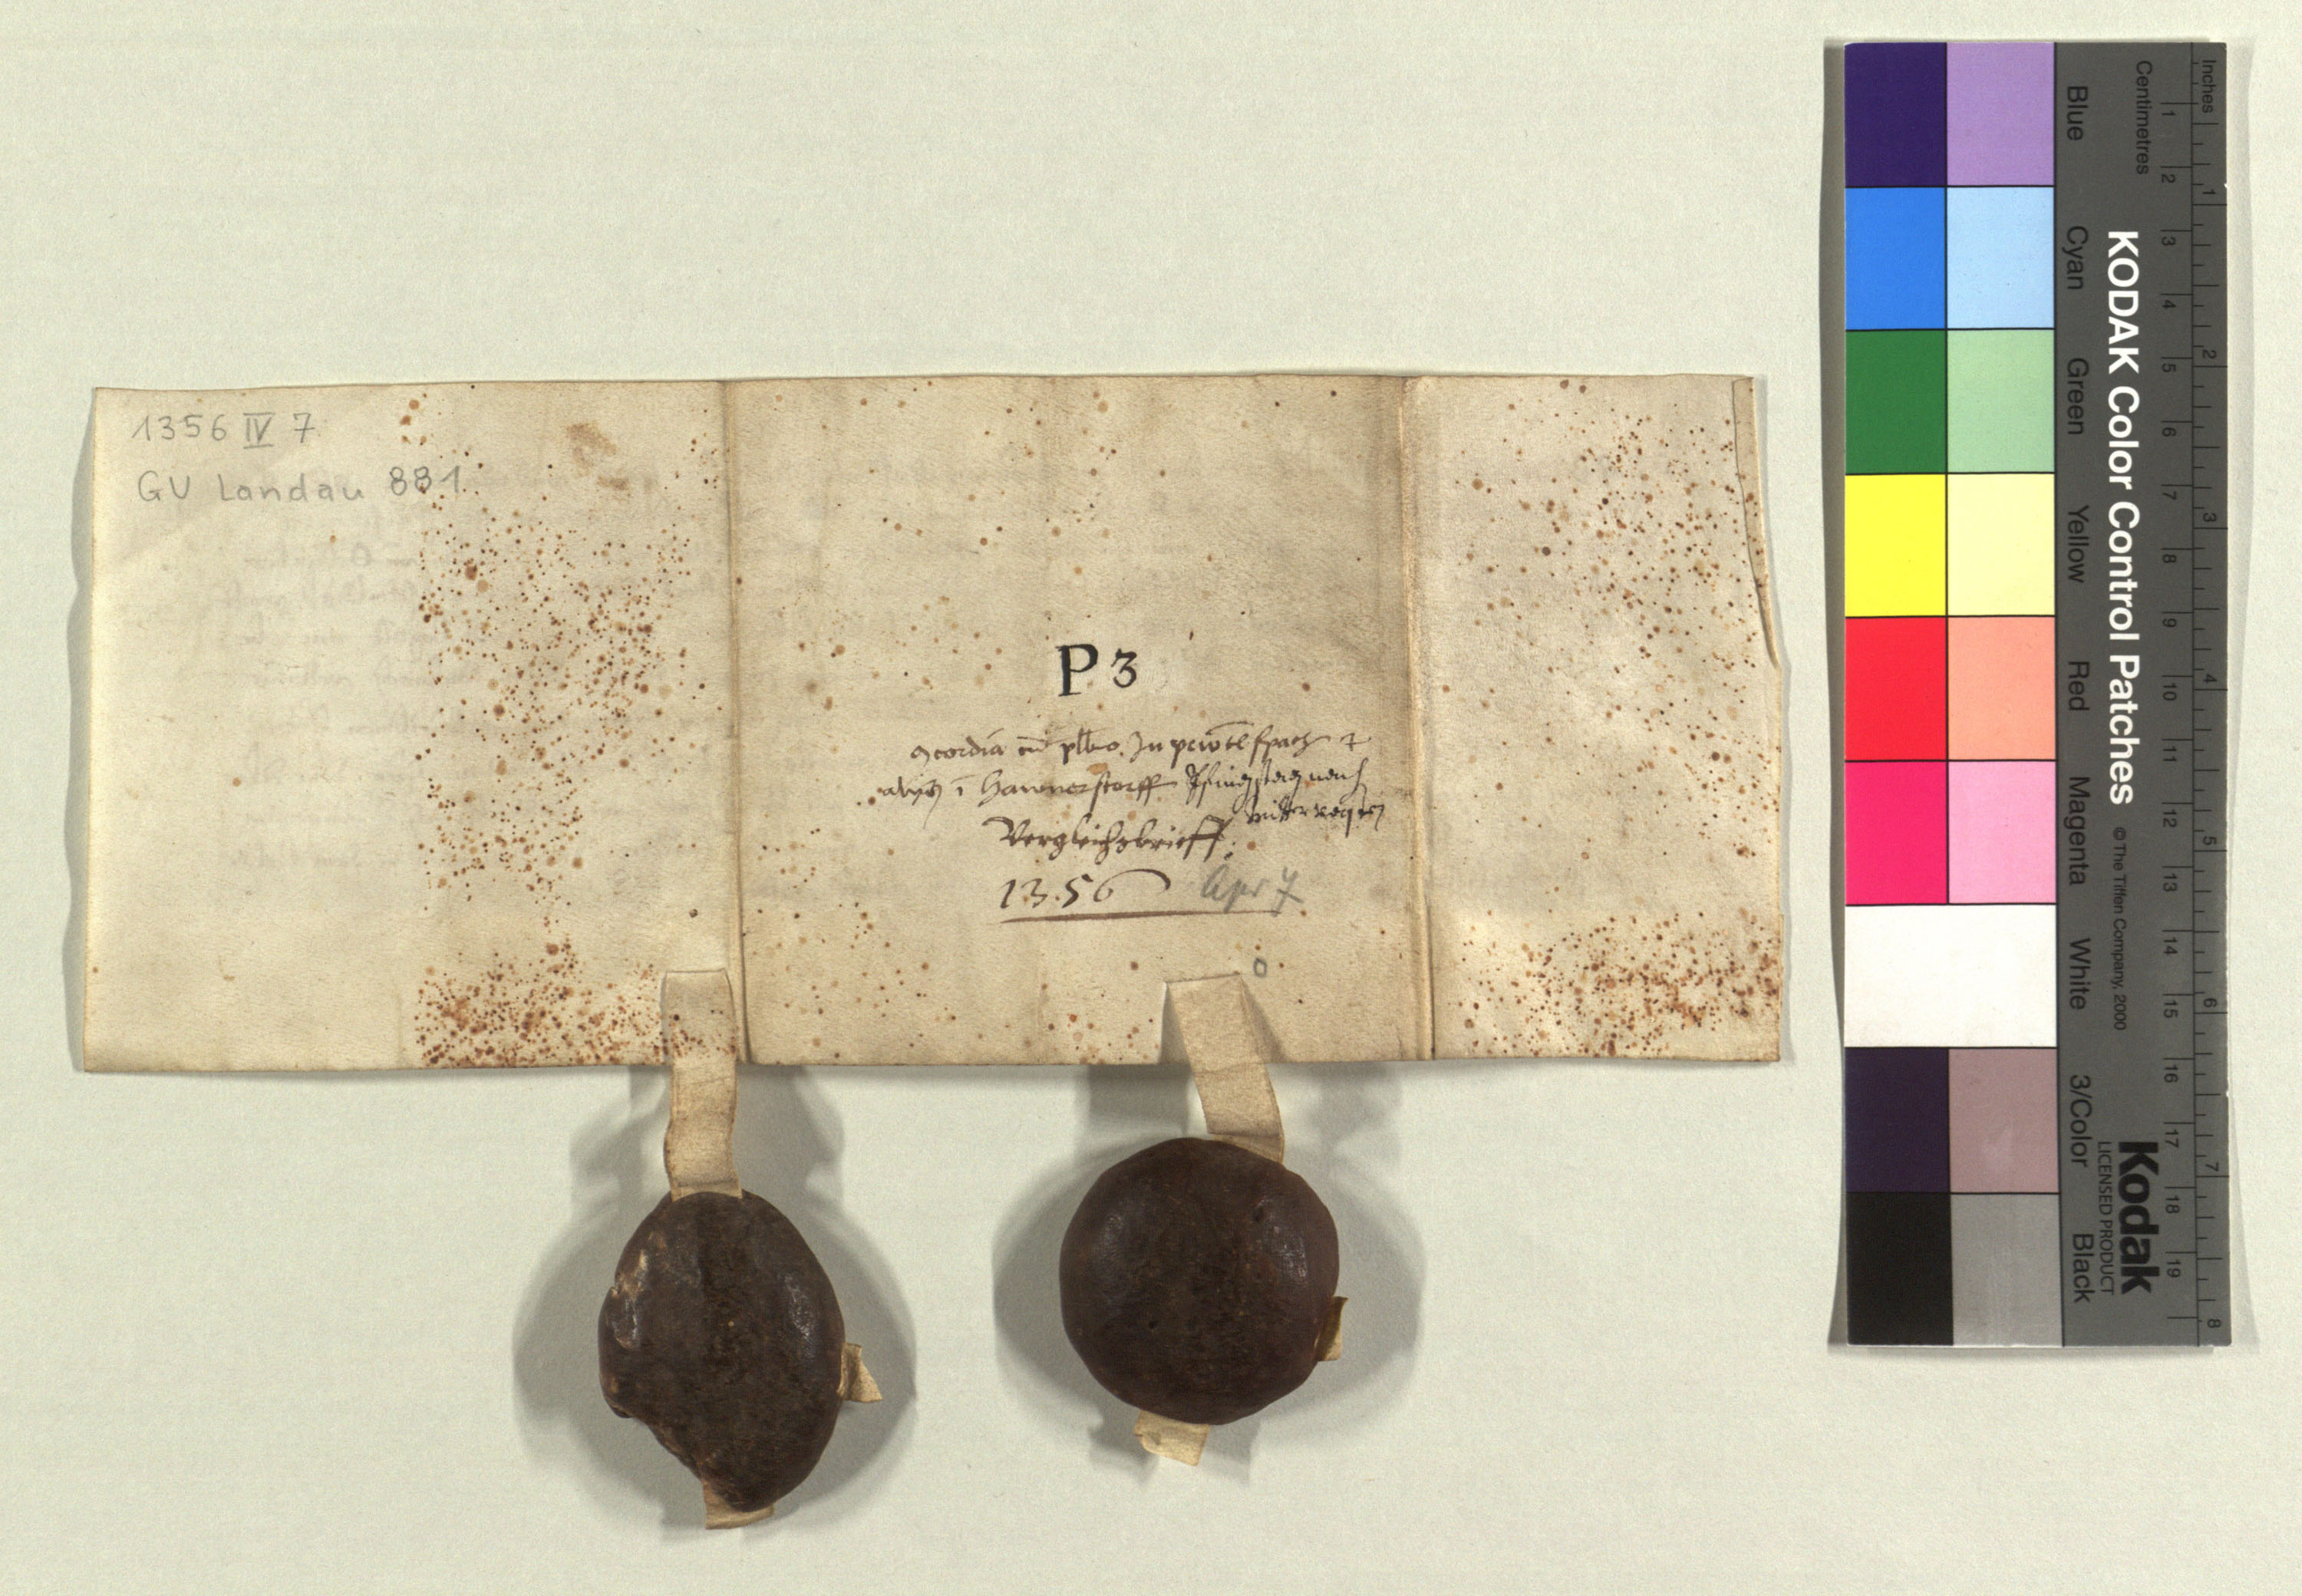 1356 IV 7
GU Landau 881
P 3
cordia cu plbo. In
i Hawnerstorff Pfingstag nach
mittervasten
Vergleichsbrieff.
1356 Apr 7
Inches
Centimetres
1 2 3 4 5 6 7 8 9 10 11 12 13 14 15 16 17 18 19
1 2 3 4 5 6 7 8
KODAK Color Control Patches © The Tiffen Company, 2000
Kodak
LICENSED PRODUCT
Blue Cyan Green Yellow Red Magenta White 3/Color Black